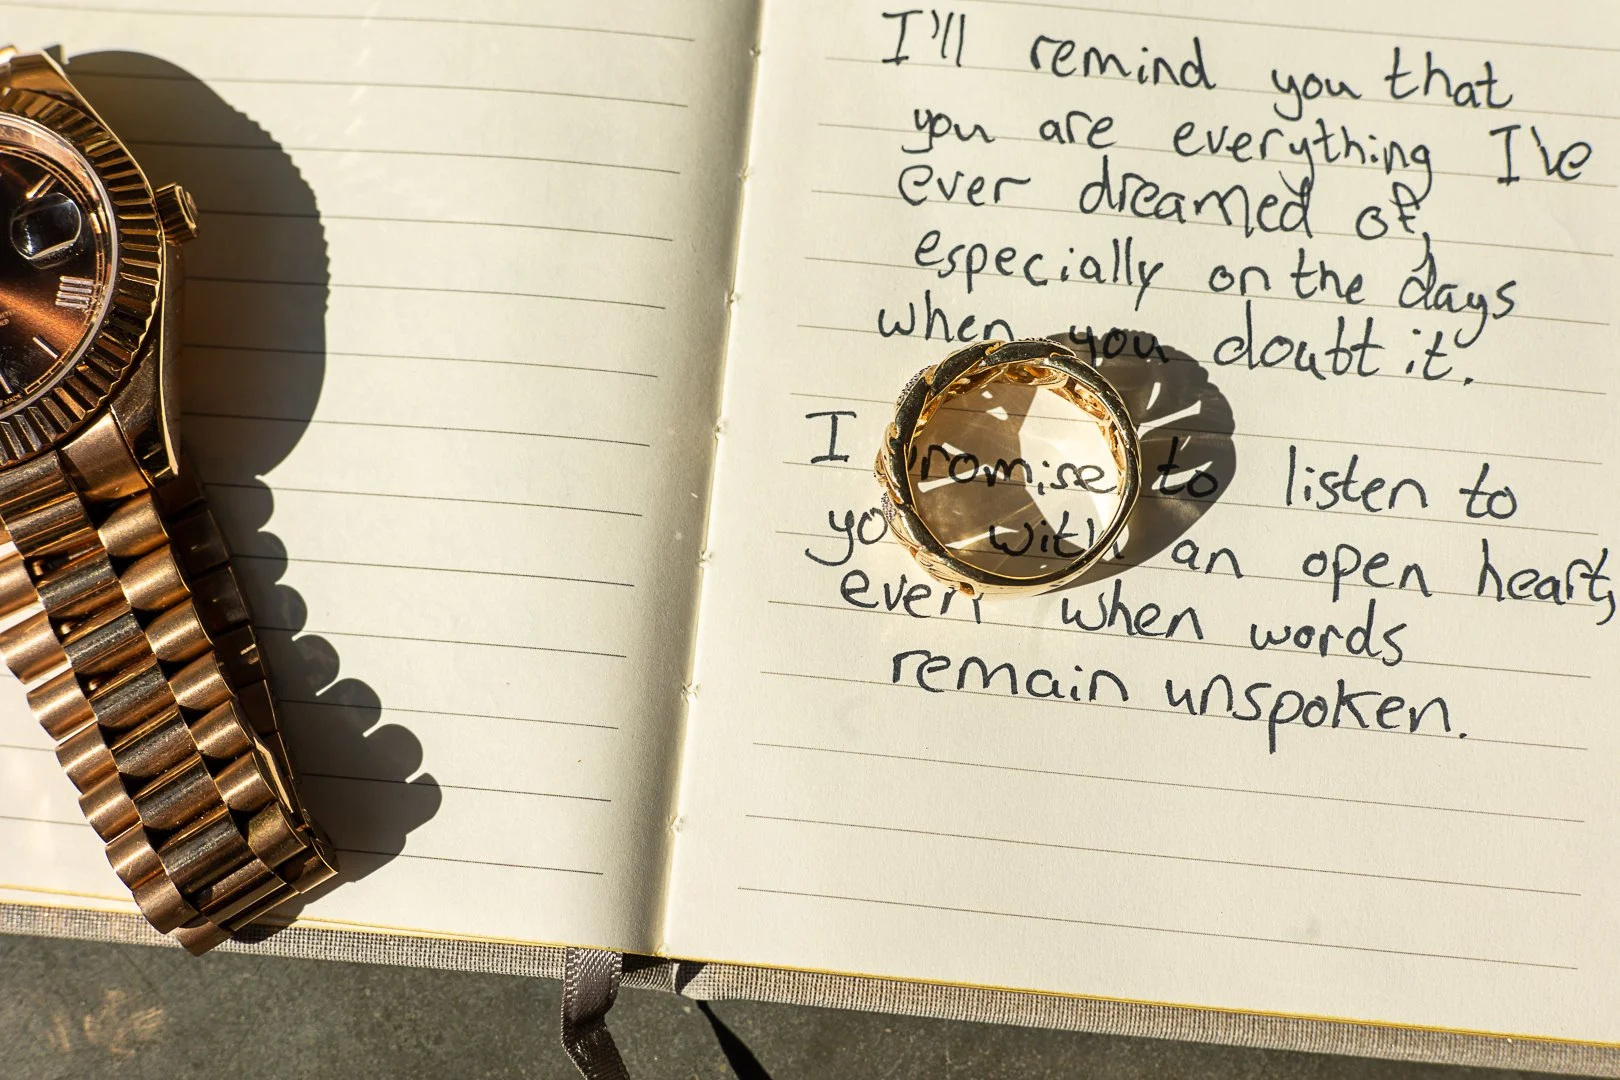 I'll remind you that
you are everything I've
ever dreamed of,
especially on the days
when you doubt it.
I promise to listen to
you with an open heart,
even when words
remain unspoken.